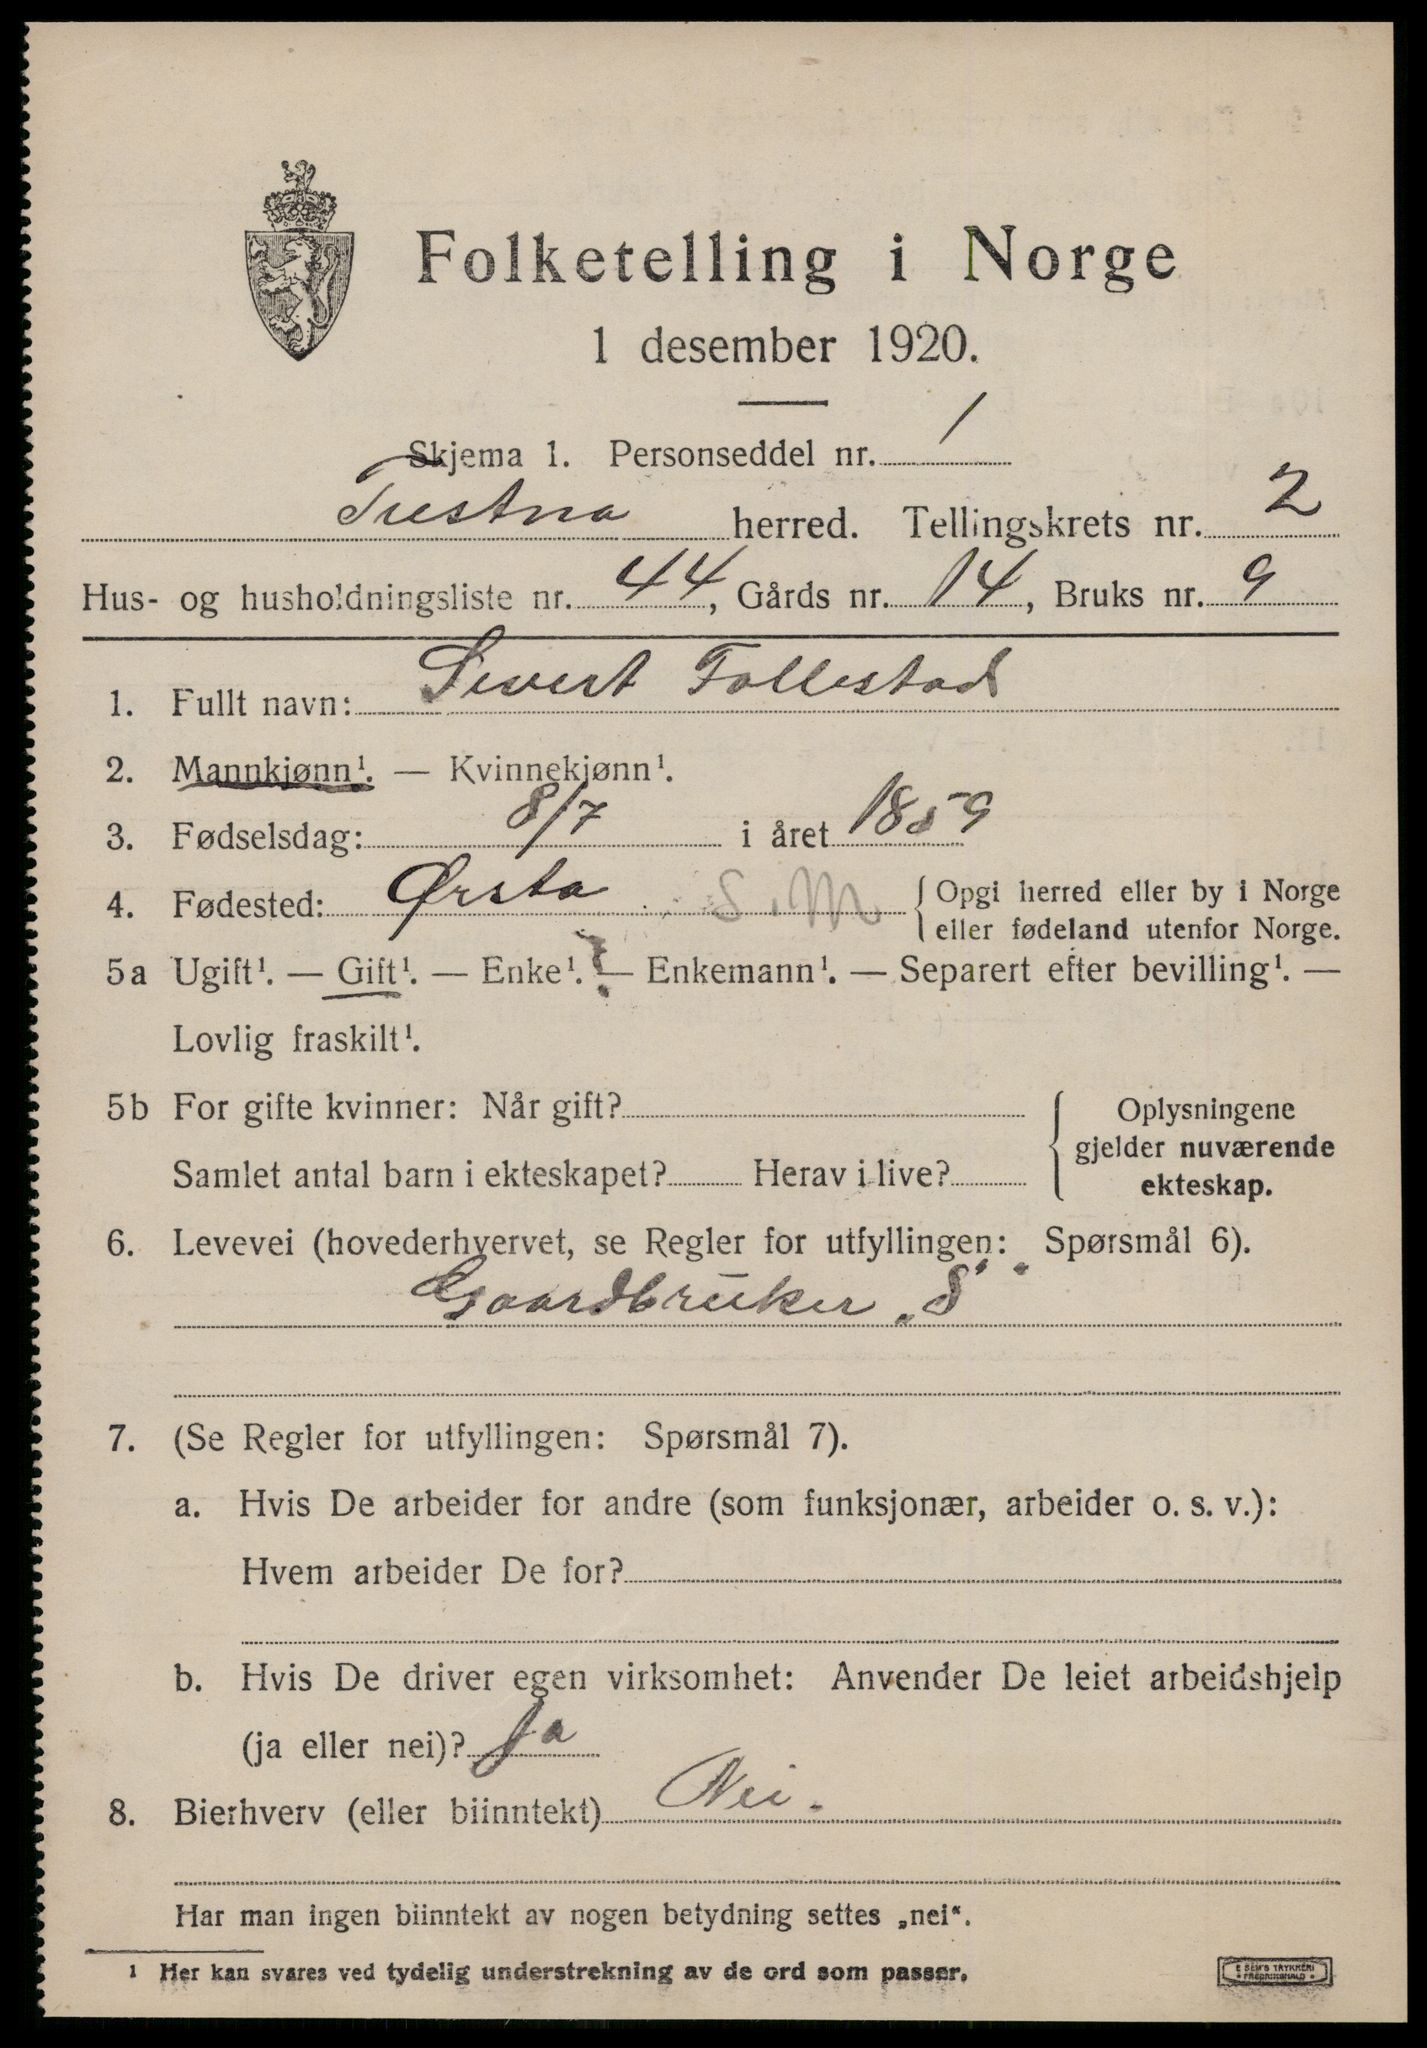 Folketelling i Norge
1 desember 1920.
Skjema 1. Personseddel nr. 1
Tustna herred. Tellingskrets nr. 2
Hus- og husholdningsliste nr. 44, Gårds nr. 14, Bruks nr. 9
1. Fullt navn: Sivert Follestad
2. Mannkjønn¹. — Kvinnekjønn¹.
3. Fødselsdag: 8/7 i året 1859
4. Fødested: Ørsta S. M { Opgi herred eller by i Norge
eller fødeland utenfor Norge.
5a Ugift¹. — Gift¹. — Enke¹. — Enkemann¹. — Separert efter bevilling¹. —
Lovlig fraskilt¹.
5b For gifte kvinner: Når gift?
Samlet antal barn i ekteskapet? Herav i live?
{ Oplysningene
gjelder nuværende
ekteskap.
6. Levevei (hovederhvervet, se Regler for utfyllingen: Spørsmål 6).
Gaardbruker „S"
7. (Se Regler for utfyllingen: Spørsmål 7).
a. Hvis De arbeider for andre (som funksjonær, arbeider o. s. v.):
Hvem arbeider De for?
b. Hvis De driver egen virksomhet: Anvender De leiet arbeidshjelp
(ja eller nei)? Ja
8. Bierhverv (eller biinntekt) Nei.
Har man ingen biinntekt av nogen betydning settes „nei“.
¹ Her kan svares ved tydelig understrekning av de ord som passer.
E SEM'S TRYKKERI
FREDRIKSHALD